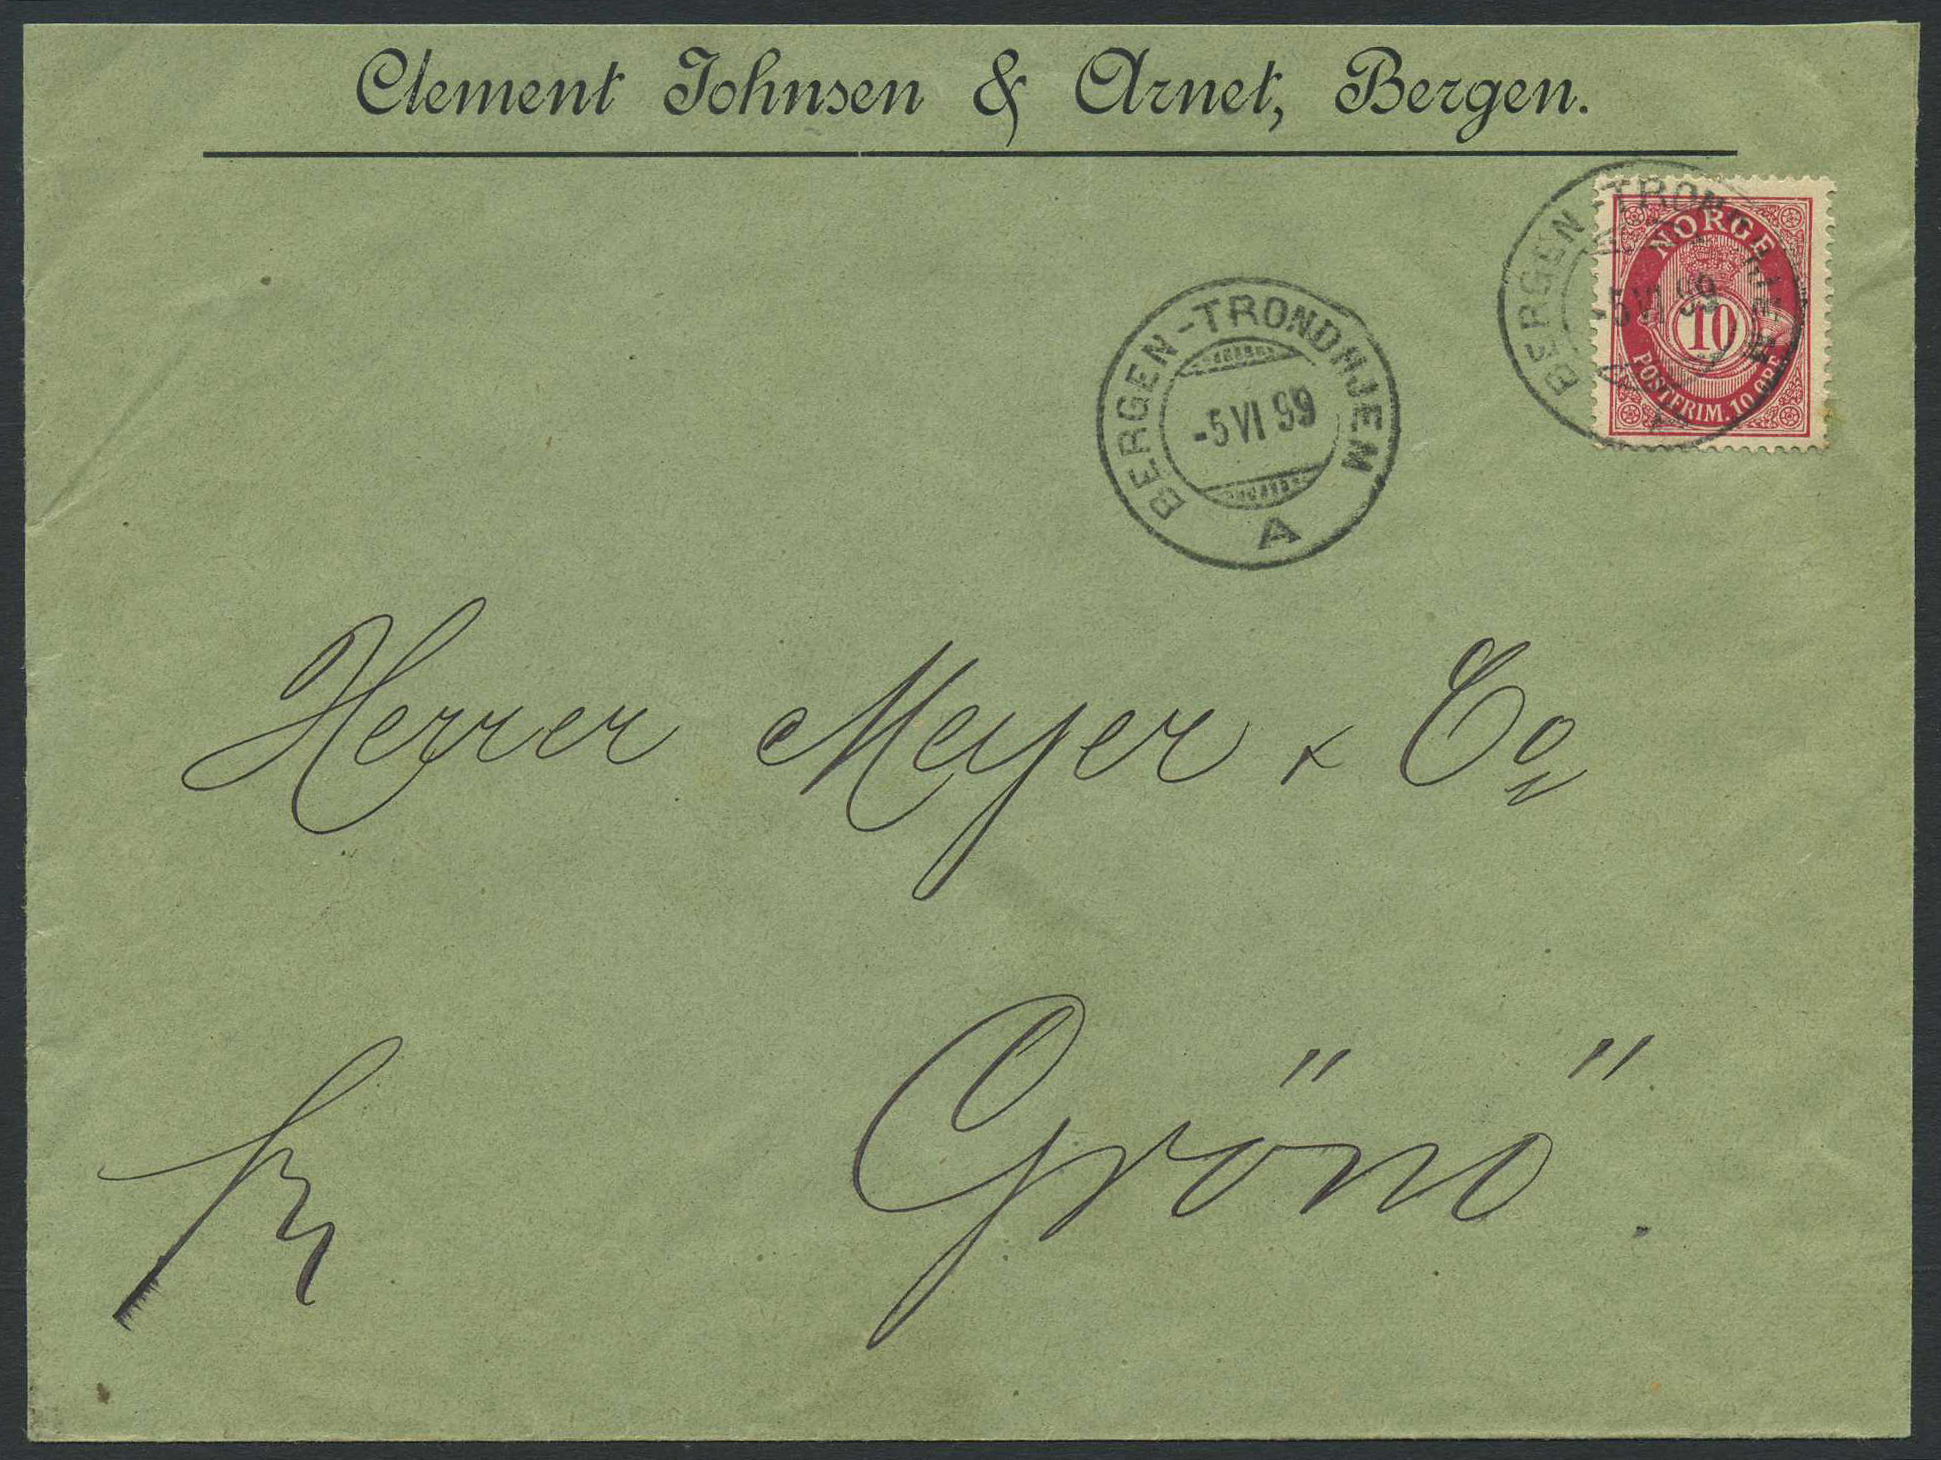 Clement Johnsen & Arnet, Bergen.
BERGEN-TRONDHJEM
-5 VI 99
A
BERGEN-TRONDHJEM
-5 VI 99
NORGE
10
POSTFRIM. 10 ØRE
Herrer Meyer & Co
Grönö.